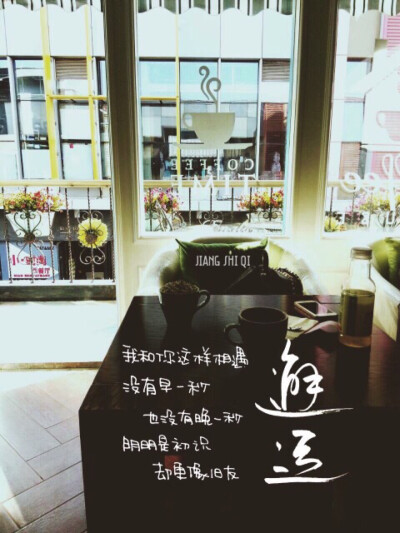 COFFEE
TIME
JIANG SHI QI
邂逅
我和你这样相遇
没有早一秒
也没有晚一秒
明明是初识
却更像旧友